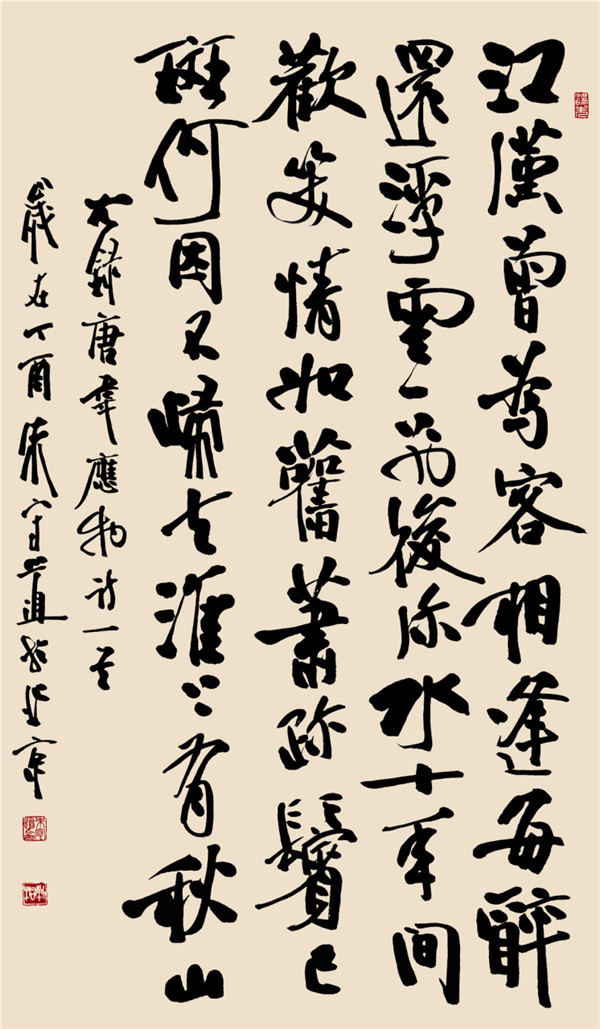 江漢曾為客相逢每醉
還浮雲一别後流水十年間
歡笑情如舊蕭疏鬢已
斑何因不歸去淮上有秋山
右錄唐韋應物詩一首
歲在丁酉朱守道於北京